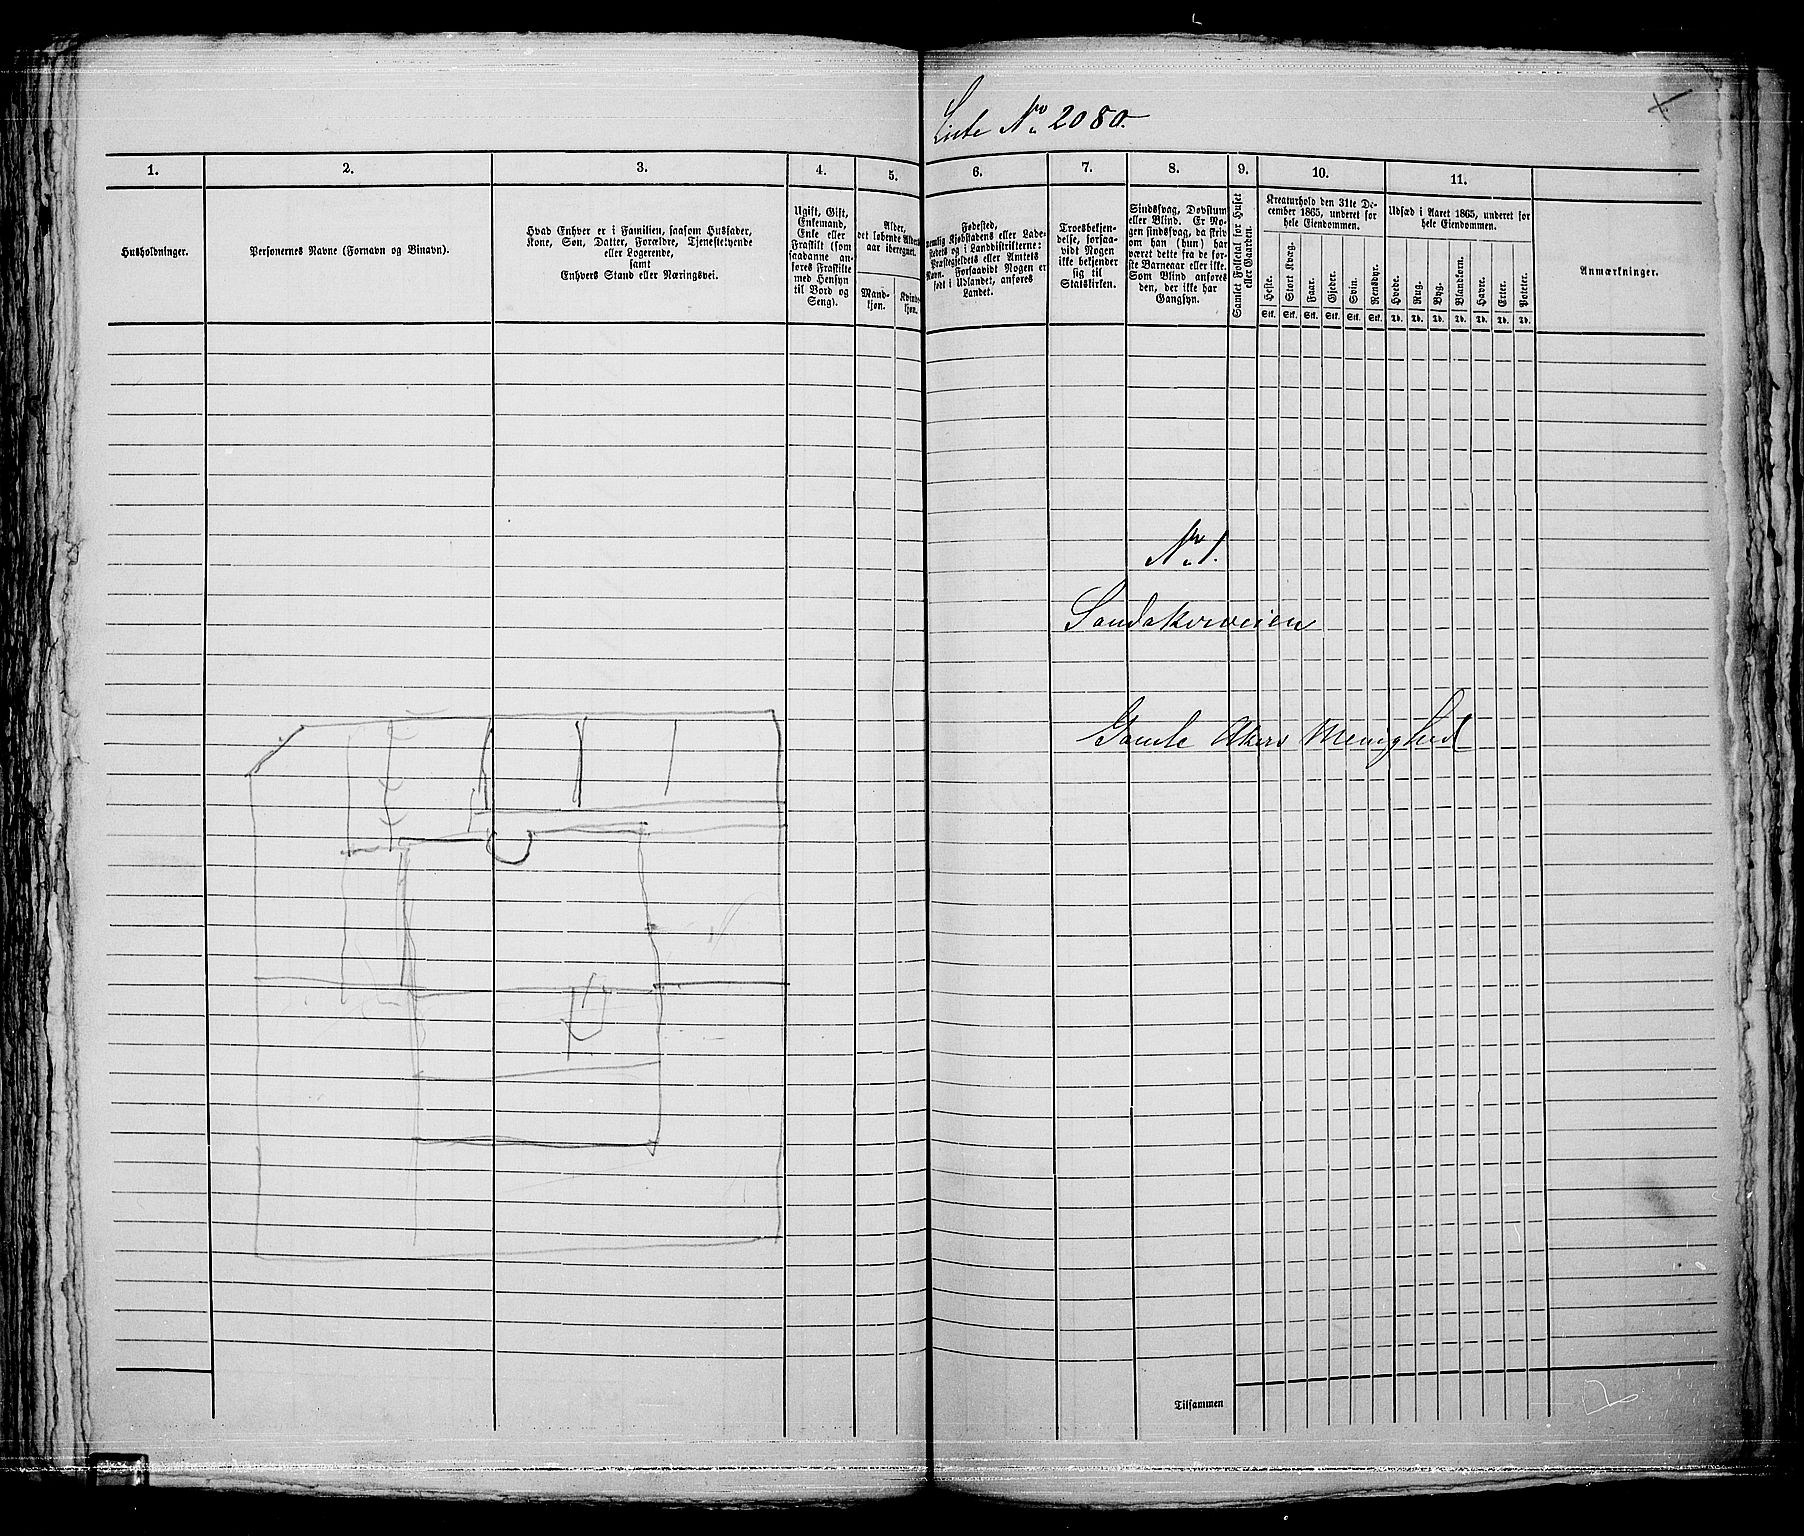 Liste No 2080.
1.
2.
3.
4.
5.
6.
7.
8.
9.
10.
11.
Husholdninger.
Personernes Navne (Fornavn og Binavn).
Hvad Enhver er i Familien, saasom Husfader,
Kone, Søn, Datter, Forældre, Tjenestetyende
eller Logerende,
samt
Enhvers Stand eller Næringsvei.
Ugift, Gift,
Enkemand,
Enke eller
Fraskilt (som
saadanne an-
føres Fraskilte
med Hensyn
til Bord og
Seng).
Alder,
det løbende Alders-
aar iberegnet.
Mand-
kjøn.
Kvinde-
kjøn.
Fødested,
nemlig Kjøbstadens eller Lade-
stedets og i Landdistrikterne:
Præstegjeldets eller Amtets
Navn. Forsaavidt Nogen er
født i Udlandet, anføres
Landet.
Troesbekjen-
delse, forsaa-
vidt Nogen
ikke bekjender
sig til
Statskirken.
Sindssvag, Døvstum
eller Blind. Er No-
gen sindssvag, da skriv
om han (hun) har
været dette fra de før-
ste Barneaar eller ikke.
Som Blind anføres
den, der ikke har
Gangsyn.
Samlet Folketal for Huset
eller Gaarden.
Kreaturhold den 31te De-
cember 1865, underet for
hele Eiendommen.
Heste.
Stort Kvæg.
Faar.
Gjeder.
Svin.
Rensdyr.
Stk.
Stk.
Stk.
Stk.
Stk.
Stk.
Udsæd i Aaret 1865, underet for
hele Eiendommen.
Hvede.
Rug.
Byg.
Blandkorn.
Havre.
Erter.
Poteter.
Td.
Td.
Td.
Td.
Td.
Td.
Td.
Anmærkninger.
No 1.
Sandakerveien
Gamle Akers Menighed
Tilsammen